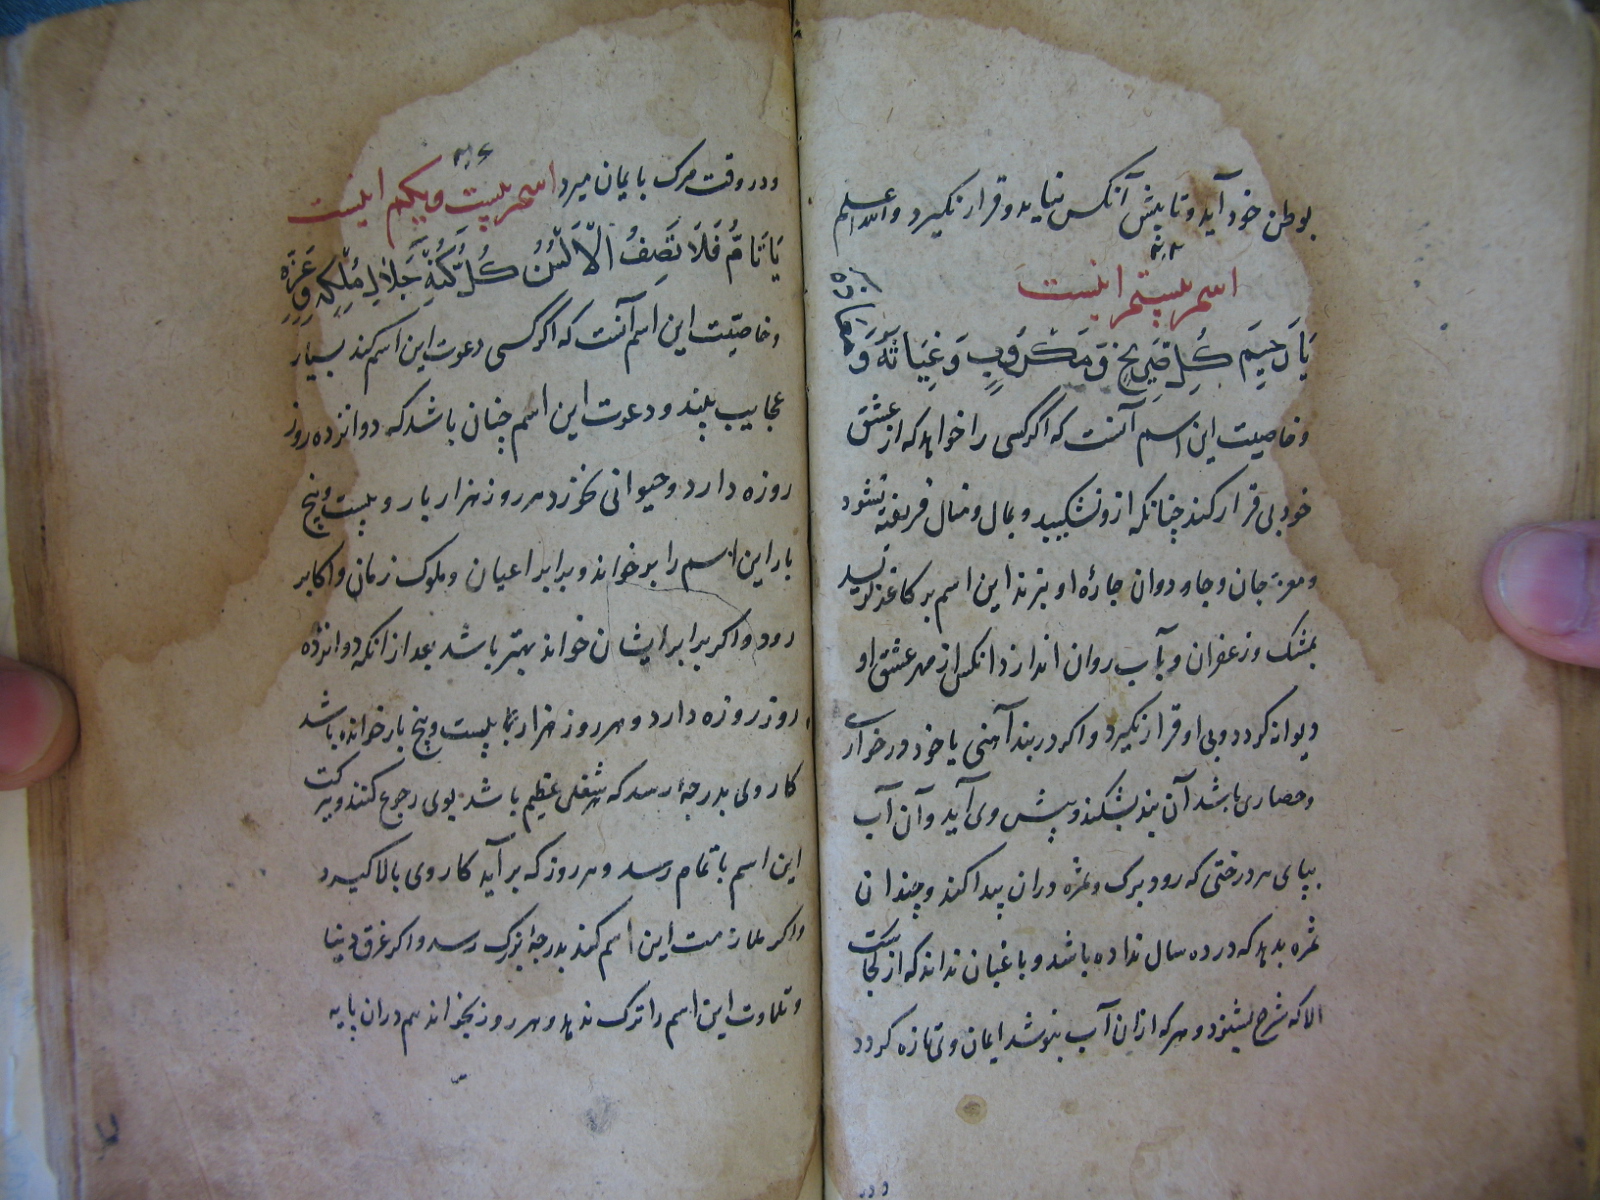 بوطن خود آید و تا پیش آنکس نیاید و قرار نکیرد والله اعلم
اسم بیستم اینست
یَا رَحِیمَ کُلِّ صَرِیخٍ وَ مَکْرُوبٍ وَ غِیَاثَهُ وَ مَعَاذَهُ
و خاصیت این اسم آنست که اکر کسی را خواهد که از عشق
خود بی قرار کند چنانکه ازو نشکیبد و بمال و منال فریفته نشود
جان و جاودوان این اسم بر کاغذ نویسد
بمشک و زعفران و بآب روان اندازد آنکس از مهر عشق او
دیوانه کردد و بی او قرار نکیرد و اکر در بند آهنی یا خود در
و حصاری باشد آن بند بشکند و پیش وی آید و آن آب
بپای هر درختی که رود برک و ثمره دران پیدا کند و چندان
ثمره بدهد که در ده سال نداده باشد و باغبان نداند که از کجاست
الا که شرح بشنود و هر که ازان آب بنوشد ایمان وی تازه کردد
ودر وقت مرک بایمان میرد اسم بیست و یکم اینست
یَا تَامُّ فَلَا تَصِفُ الْاَلْسُنُ کُلَّ کُنْهِ جَلَالِ مُلْکِهِ وَ عِزِّهِ
و خاصیت این اسم آنست که اکر کسی دعوت این اسم کند بسیار
عجایب بیند و دعوت این اسم چنان باشد که دوانزده روز
روزه دارد و حیوانی نخورد هر روز هزار بار و بیست و پنج
بار این اسم را بر خواند و برابر اعیان و ملوک زمان و اکابر
رود و اکر برابر ایشان خواند بهتر باشد بعد از انکه دوانزده
روز روزه دارد و هر روز هزار بیست و پنج بار خوانده باشد
کار وی بدرجهٔ رسد که شغلی عظیم باشد بوی رجوع کنند و ببرکت
این اسم باتمام رسد و هر روز که بر آید کار وی بالا کیرد
و اکر ملازمت این اسم کند بدرجهٔ بزرک رسد و اکر غرق دنیا
و تلاوت این اسم را ترک ندهد و هر روز بخواند هم دران پایه